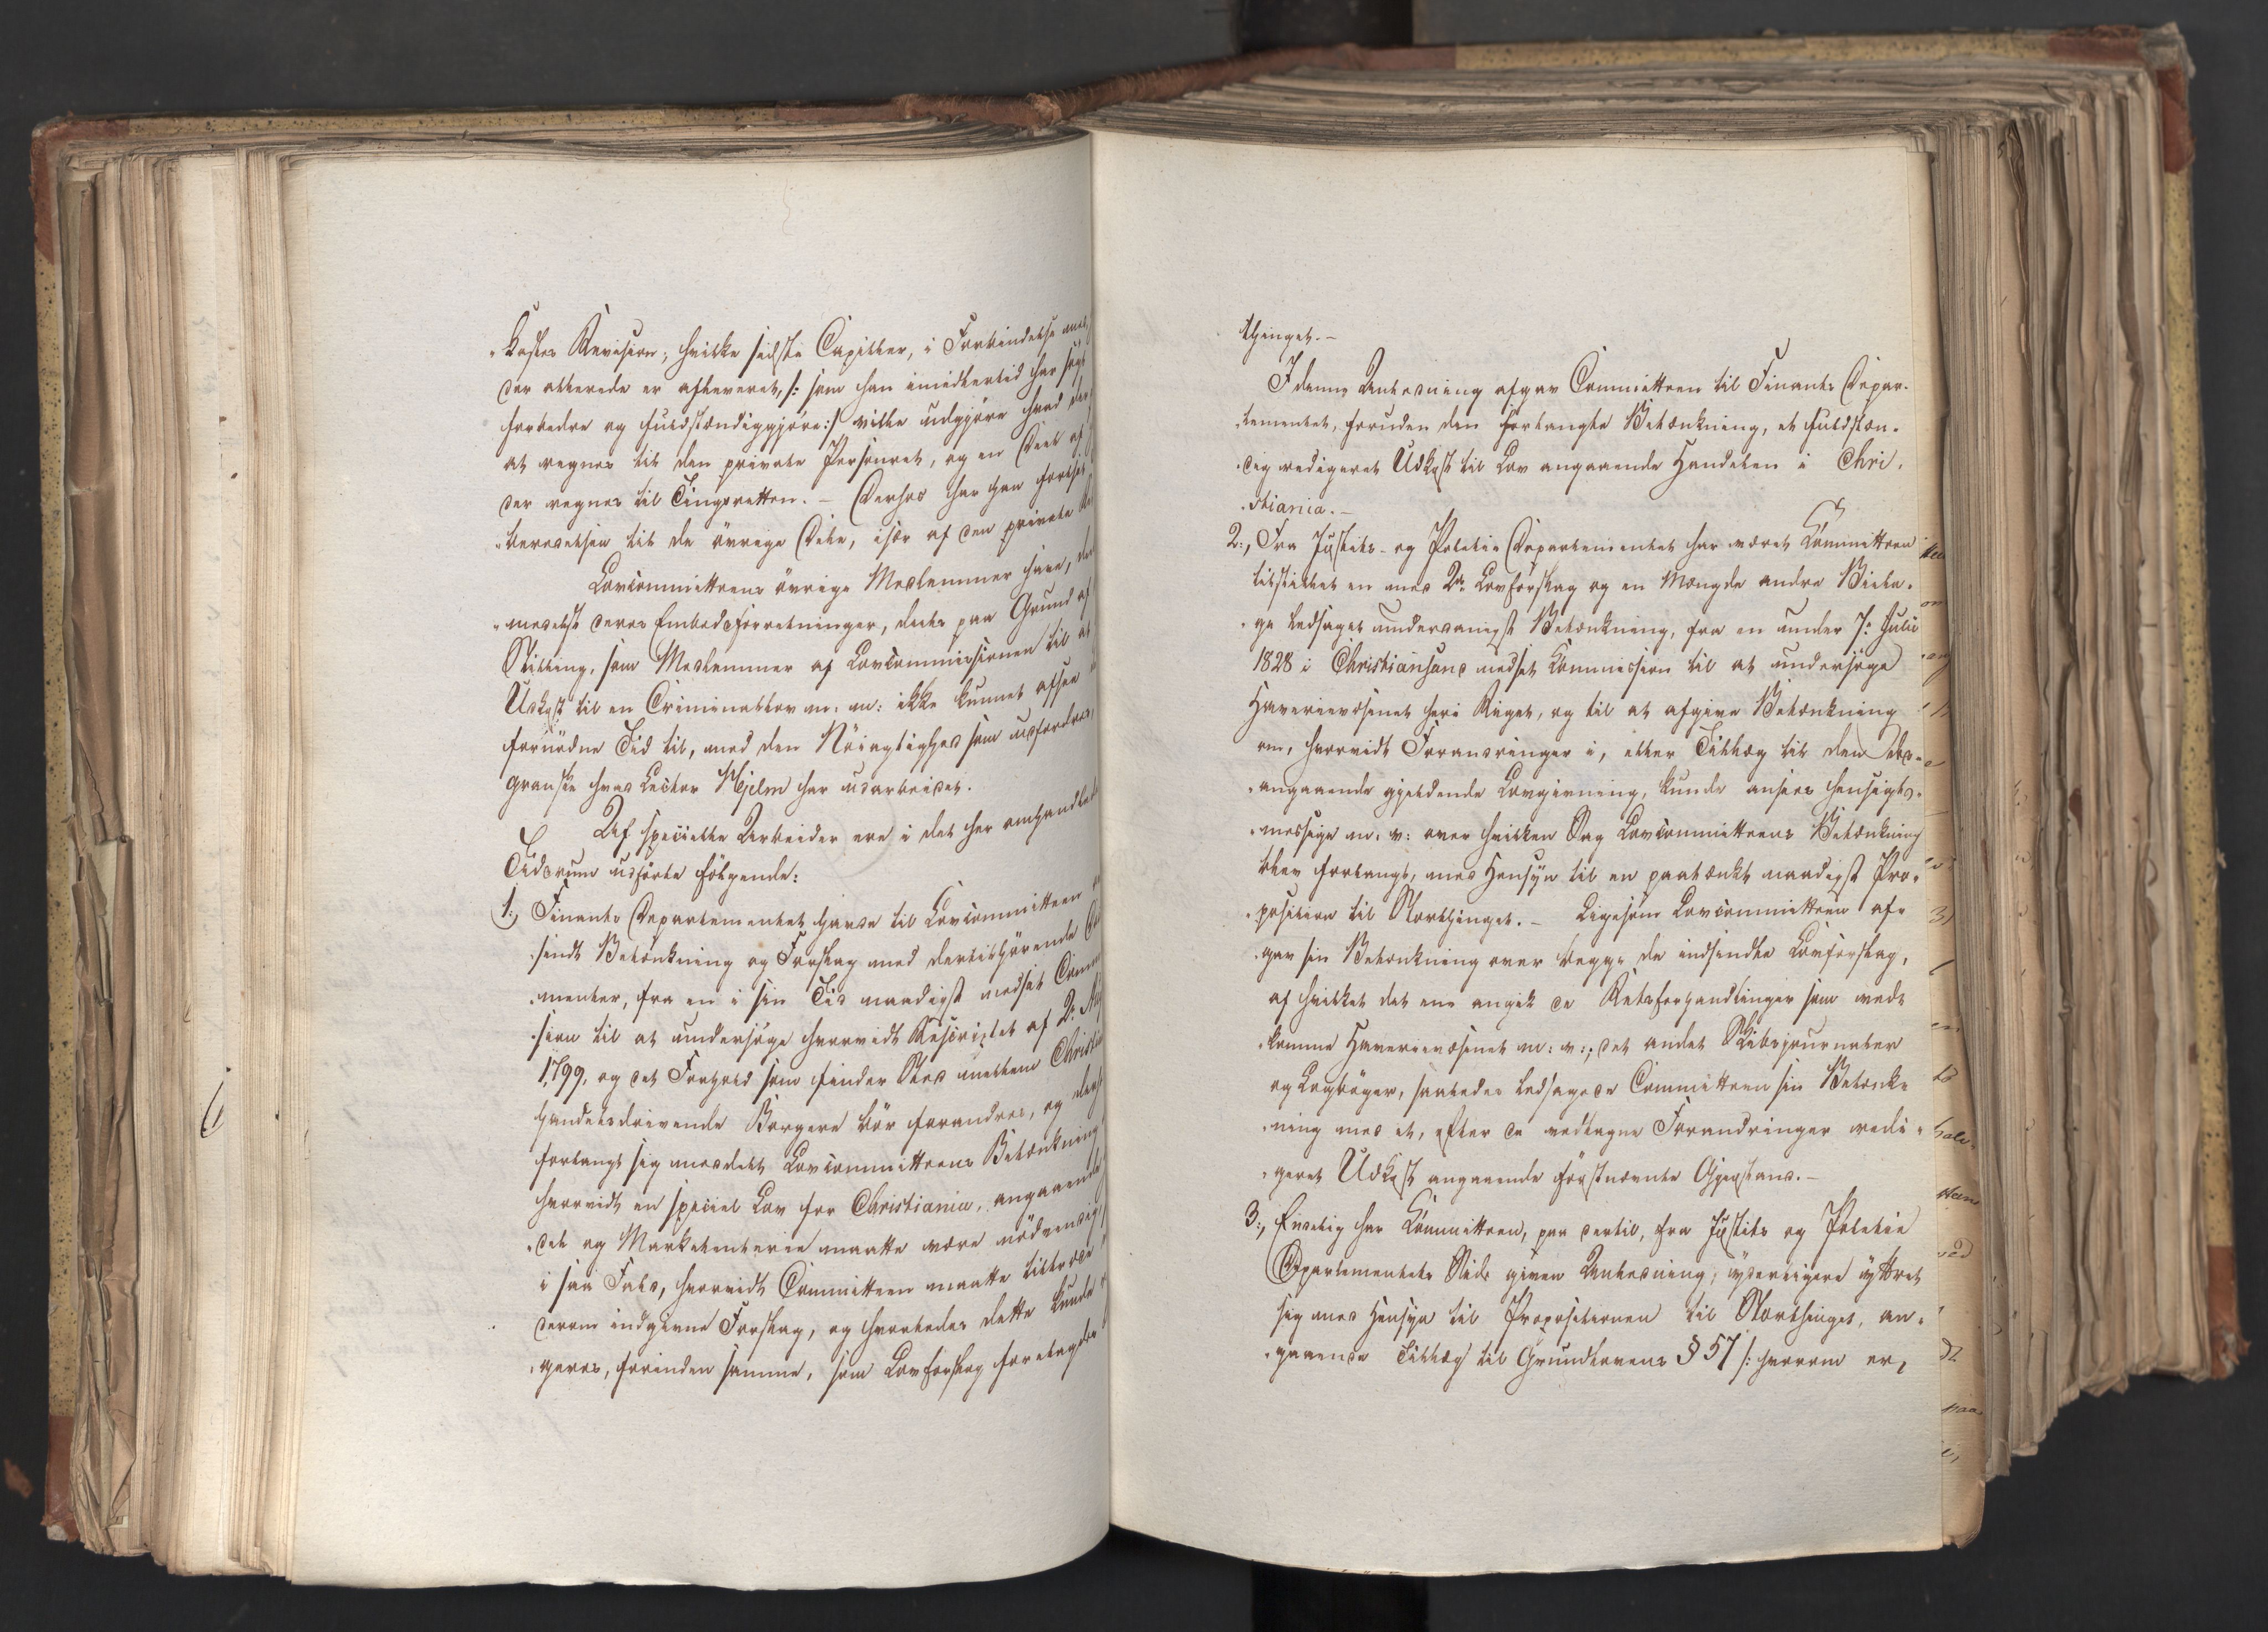 kastes Revision; hvilke sidste Capitler, i Forbindelse med
der allerede er afleveret, /: som han imidlertid har søgt
forbedre og fuldstændiggjøre :/ ville udgjøre hvad der
at regnes til den private Personret, og en Deel af
der regnes til Tingsretten. – Derhos har han fortsat
beredelsen til de övrige Dele, især af den private
Lovcommitteens övrige Medlemmer have, deels
medelst deres Embedsforretninger, deels paa Grund af
Stilling, som Medlemmer af Lovcommissionen til at
Udkast til en Criminallov m: m: ikke kunnet afsee
fornödne Tid til, med den Nöiagtighed som udfordres,
granske hvad Lector Hjelm har udarbeidet.
Af specielle Arbeider ere i det her omhandlede
Tidsrum udförte fölgende:
1., Finants Departementet havde til Lovcommitteen
sendt Betænkning og Forslag med dertilhörende
menter, fra en i sin Tid naadigst nedsat Commis
sion til at undersöge hvorvidt Rescriptet af 2:
1799, og det Forhold som finder Sted mellem Christia
handelsdrivende Borgere bör forandres, og
forlangt sig meddeelt Lovcommitteens Betænkning
hvorvidt en speciel Lov for Christiania, angaaende
del og Marketenterie maatte være nödvendig
i saa Fald, hvorvidt Committeen maatte tiltræde
derom indgivne Forslag, og hvorledes dette kunde
geres, forinden samme, som Lovforslag foretages
thinget. –
I denne Anledning afgav Committeen til Finants Depar-
tementet, foruden den forlangte Betænkning, et fuldstæn-
dig redigeret Udkast til Lov angaaende Handelen i Chri-
stiania. –
2., Fra Justits- og Politie Departementet har været Committeen
tilstillet en med 2de Lovforslag og en Mængde andre Bila-
ge ledsaget underdanigst Betænkning, fra en under 7: Julii
1828 i Christiansand nedsat Commission til at undersöge
Haverievæsenet heri Riget, og til at afgive Betænkning
om, hvorvidt Forandringer i, eller Tillæg til den des-
angaaende gjeldende Lovgivning, kunde ansees hensigts-
mæssige m: v: over hvilken Sag Lovcommitteens Betænkning
blev forlangt, med Hensyn til en paatænkt naadigst Pro-
position til Storthinget. – Ligesom Lovcommitteen af-
gav sin Betænkning over begge de indsendte Lovforslag,
af hvilket det ene angik de Retsforhandlinger som ved-
komme Haverievæsenet m: v:, det andet Skibsjournaler
og Logböger, saaledes ledsagede Committeen sin Betænk-
ning med et, efter de vedtagne Forandringer redi-
geret Udkast angaaende förstnævnte Gjenstand. –
3., Endelig har Committeen, paa dertil, fra Justits og Politie
Departementets Side given Anledning, yderligere yttret
sig med Hensyn til Propositionen til Storthinget, an-
gaaende Tillæg til Grundlovens § 57 /: hvorom er,